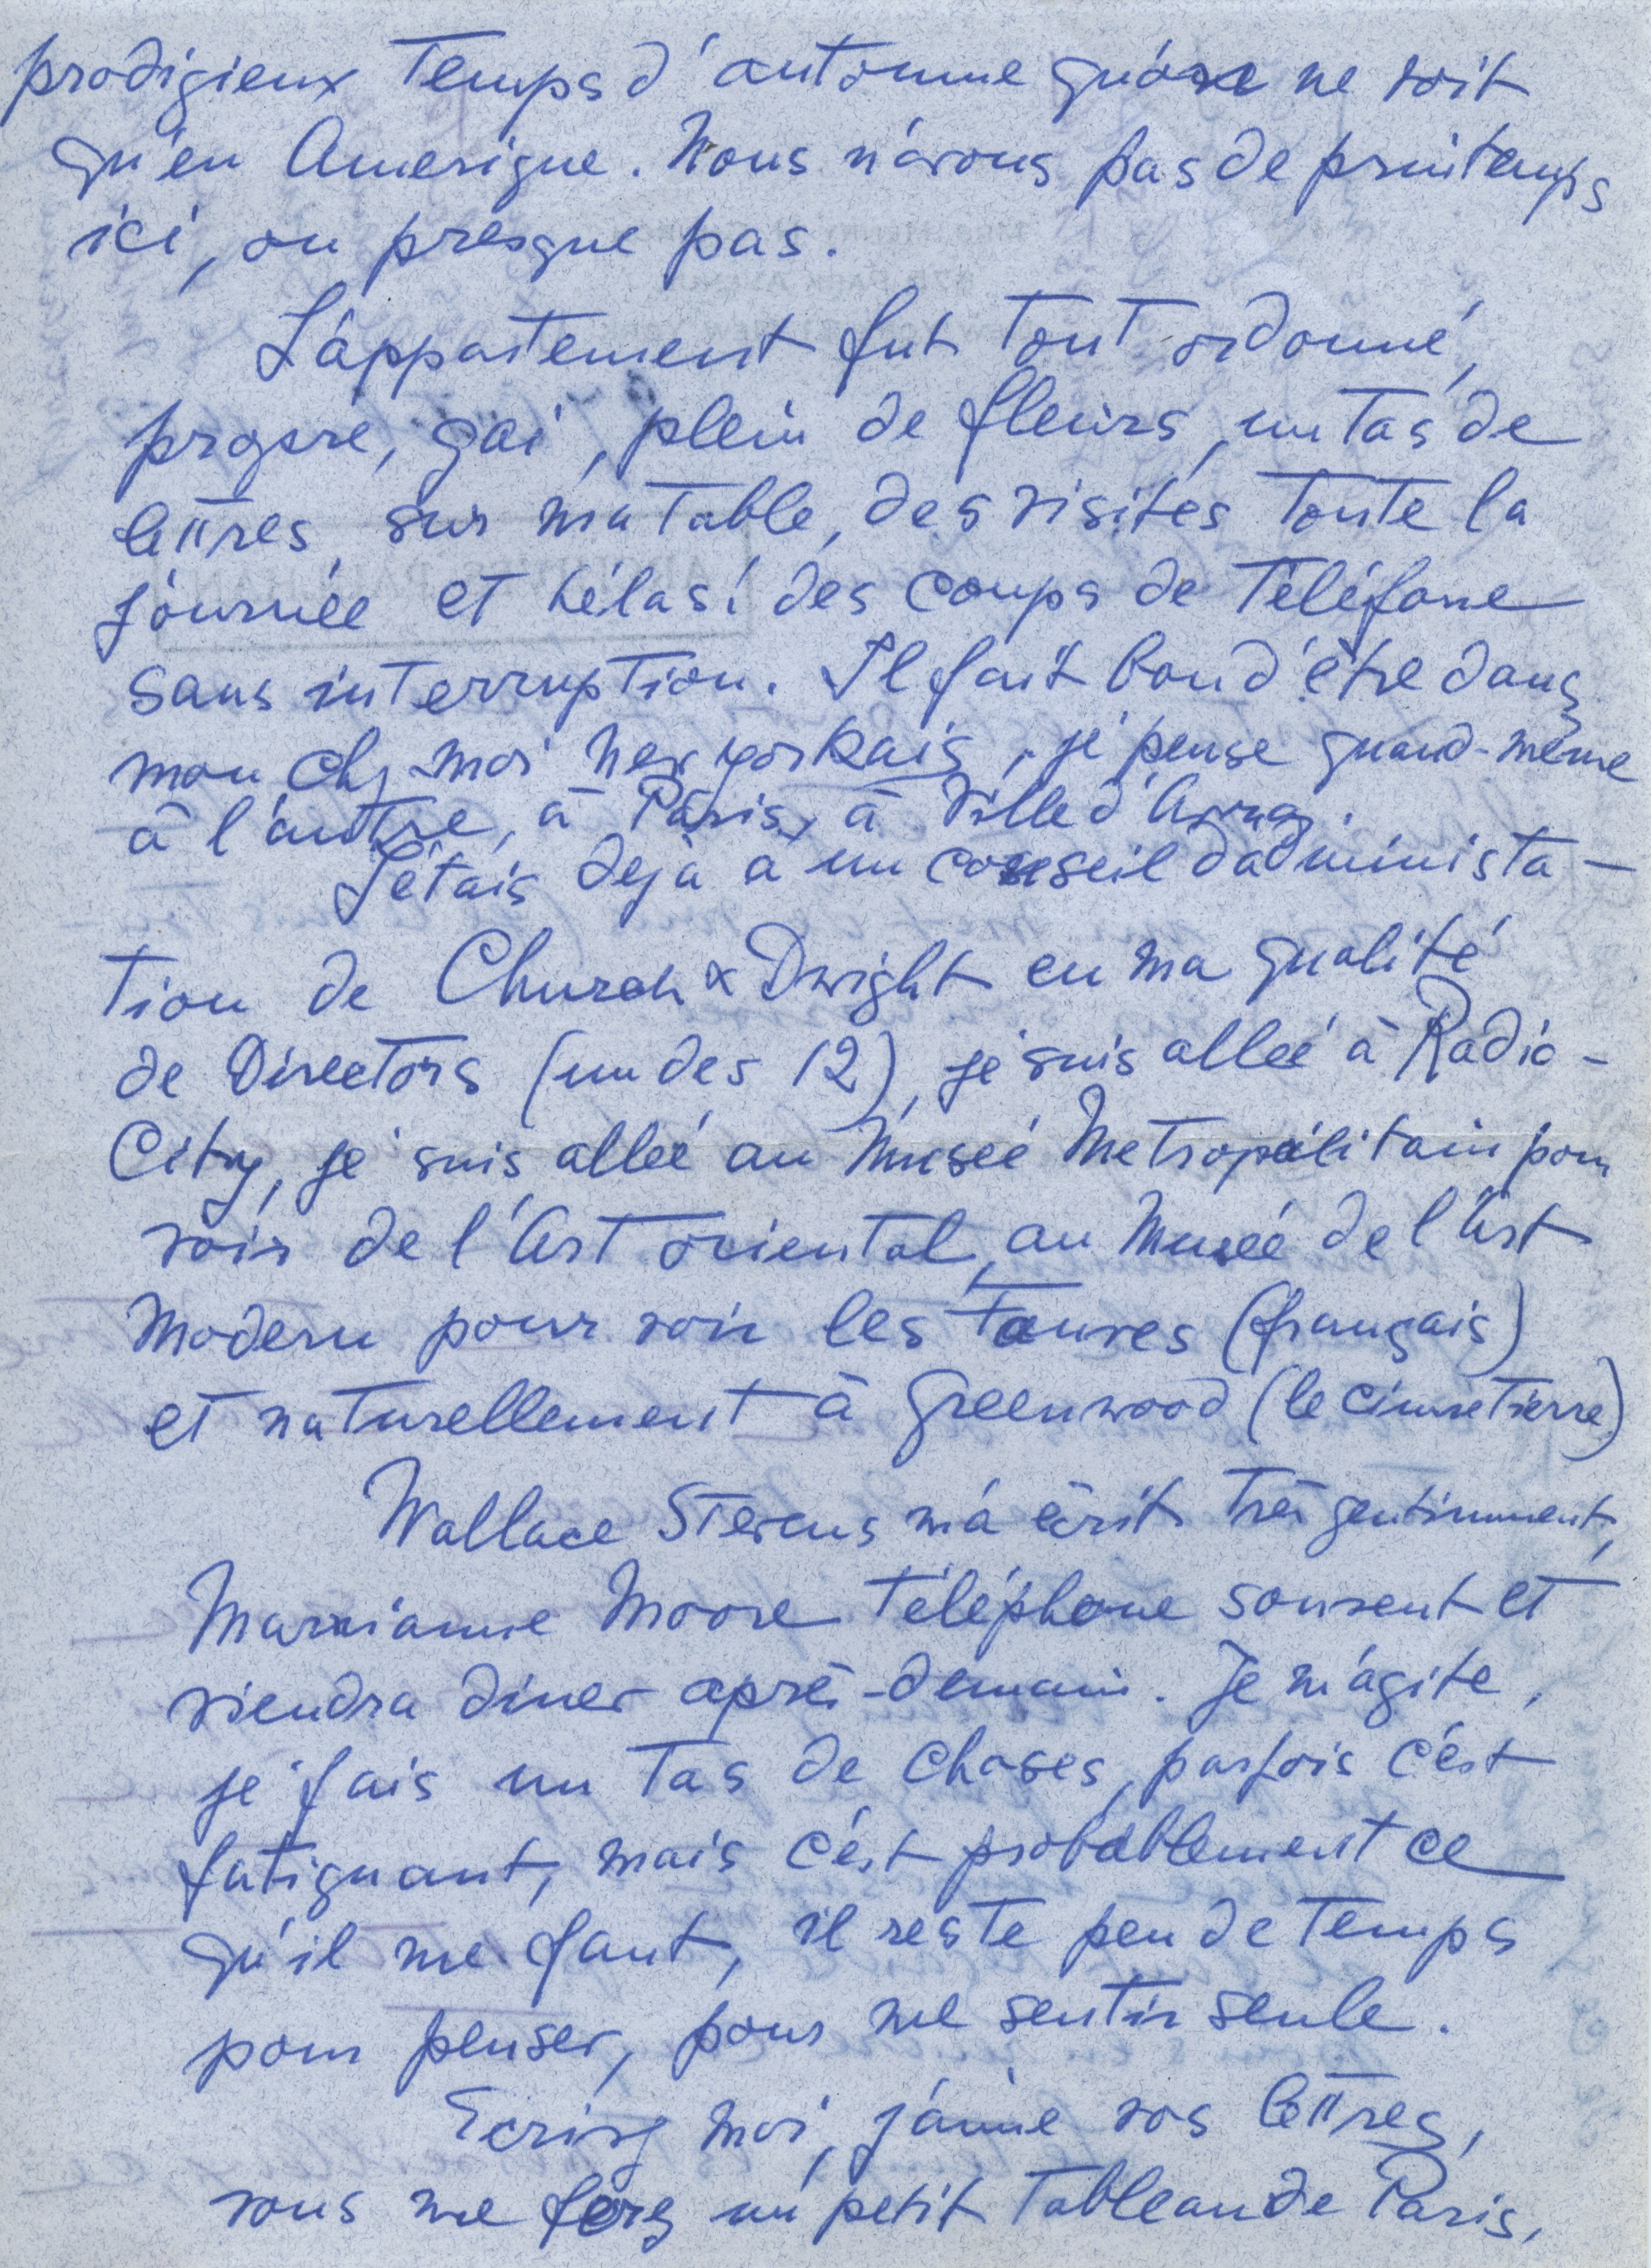 prodigieux temps d'automne qu'one ne voit
qu'en Amerique. Nous n'avons pas de printemps
ici, ou presque pas.
L'appartement fut tout ordonné,
propre, gai, plein de fleurs, un tas de
lettres sur ma table, des visites toute la
journée et hélas! des coups de téléfone
sans interruption. Il fait bon d'être dans
mon chz moi newyorkais, je pense quand-même
à l'autre, à Paris, à Ville d'Avray.
J'étais dejà à un conseil d'administa-
tion de Church & Dwight en ma qualité
de Directors (un des 12), je suis allée à Radio-
City, je suis allée au Musée Metropolitain pour
voir de l'Art oriental, au Musée de l'Art
Modern pour voir les fauves (français)
et naturellement à Greenwood (le cimetierre)
Wallace Stevens m'a écrit très gentimment,
Marianne Moore téléphone souvent et
viendra diner après-demain. Je m'agite,
je fais un tas de choses, parfois c'est
fatiguant, mais c'est probablement ce
qu'il me faut, il reste peu de temps
pour penser, pour me sentir seule.
Ecrivz moi, j'aime vos lettres,
vous me ferz un petit tableau de Paris,